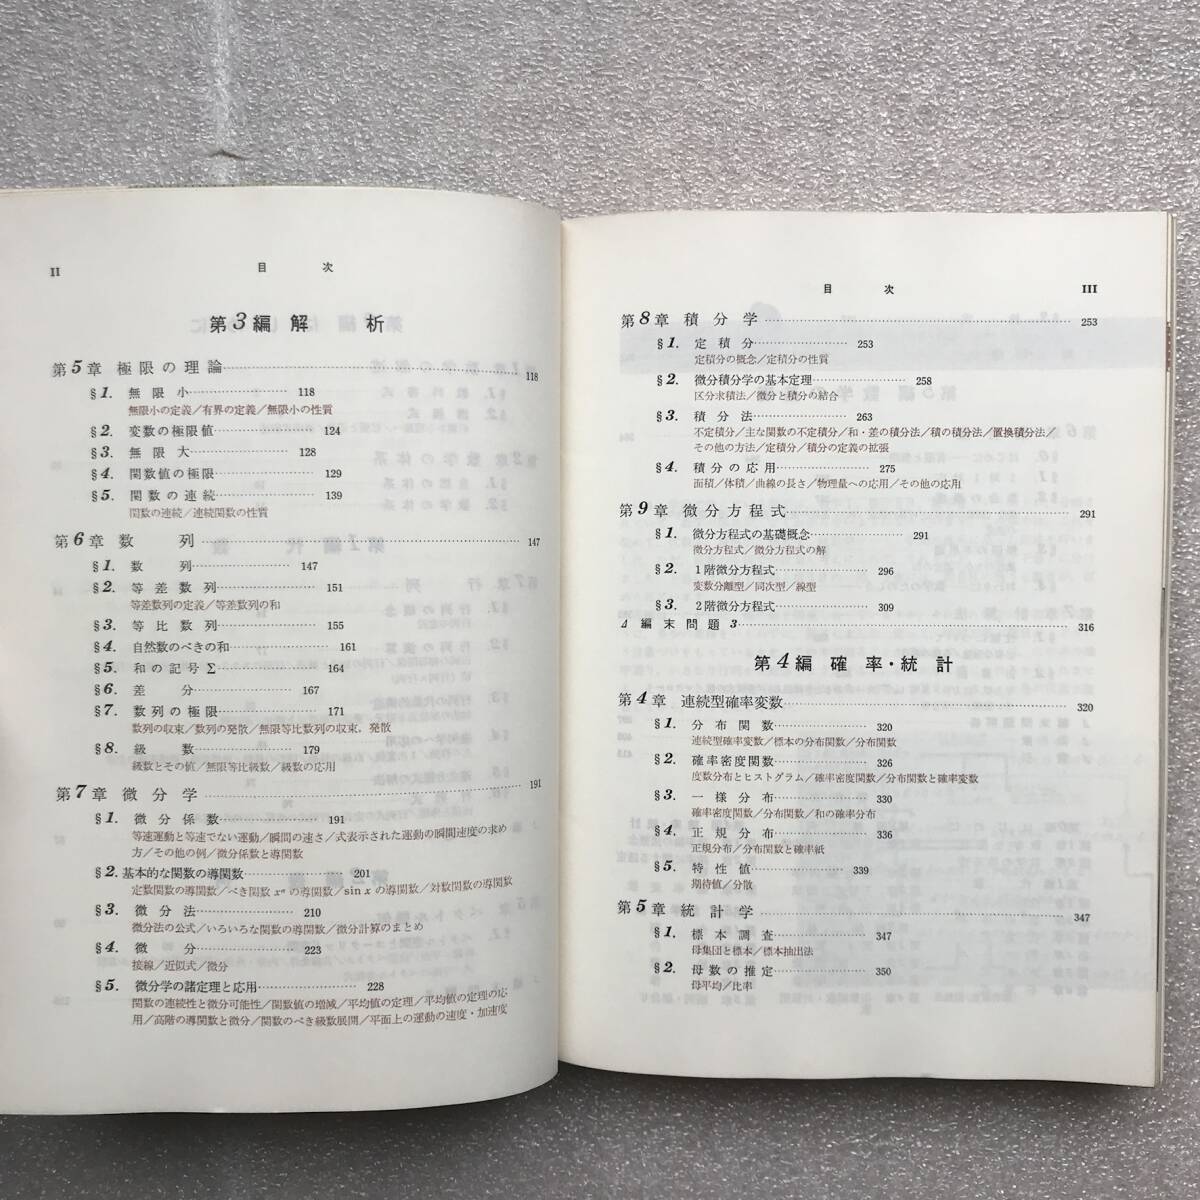 II
目 次
第3編 解 析
第5章 極限の理論 118
§1. 無限小 118
無限小の定義/有界の定義/無限小の性質
§2. 変数の極限値 124
§3. 無限大 128
§4. 関数値の極限 129
§5. 関数の連続 139
関数の連続/連続関数の性質
第6章 数 列 147
§1. 数 列 147
§2. 等差数列 151
等差数列の定義/等差数列の和
§3. 等比数列 155
§4. 自然数のべきの和 161
§5. 和の記号Σ 164
§6. 差 分 167
§7. 数列の極限 171
数列の収束/数列の発散/無限等比数列の収束,発散
§8. 級 数 179
級数とその値/無限等比級数/級数の応用
第7章 微分学 191
§1. 微分係数 191
等速運動と等速でない運動/瞬間の速さ/式表示された運動の瞬間速度の求め
方/その他の例/微分係数と導関数
§2. 基本的な関数の導関数 201
定数関数の導関数/べき関数 xⁿ の導関数/sin x の導関数/対数関数の導関数
§3. 微分法 210
微分法の公式/いろいろな関数の導関数/微分計算のまとめ
§4. 微 分 223
接線/近似式/微分
§5. 微分学の諸定理と応用 228
関数の連続性と微分可能性/関数値の増減/平均値の定理/平均値の定理の応
用/高階の導関数と微分/関数のべき級数展開/平面上の運動の速度・加速度
目 次
III
第8章 積分学 253
§1. 定積分 253
定積分の概念/定積分の性質
§2. 微分積分学の基本定理 258
区分求積法/微分と積分の結合
§3. 積分法 263
不定積分/主な関数の不定積分/和・差の積分法/積の積分法/置換積分法/
その他の方法/定積分/積分の定義の拡張
§4. 積分の応用 275
面積/体積/曲線の長さ/物理量への応用/その他の応用
第9章 微分方程式 291
§1. 微分方程式の基礎概念 291
微分方程式/微分方程式の解
§2. 1階微分方程式 296
変数分離型/同次型/線型
§3. 2階微分方程式 309
編末問題 3 316
第4編 確率・統計
第4章 連続型確率変数 320
§1. 分布関数 320
連続型確率変数/標本の分布関数/分布関数
§2. 確率密度関数 326
度数分布とヒストグラム/確率密度関数/分布関数と確率変数
§3. 一様分布 330
確率密度関数/分布関数/和の確率分布
§4. 正規分布 336
正規分布/分布関数と確率紙
§5. 特性値 339
期待値/分散
第5章 統計学 347
§1. 標本調査 347
母集団と標本/標本抽出法
§2. 母数の推定 350
母平均/比率